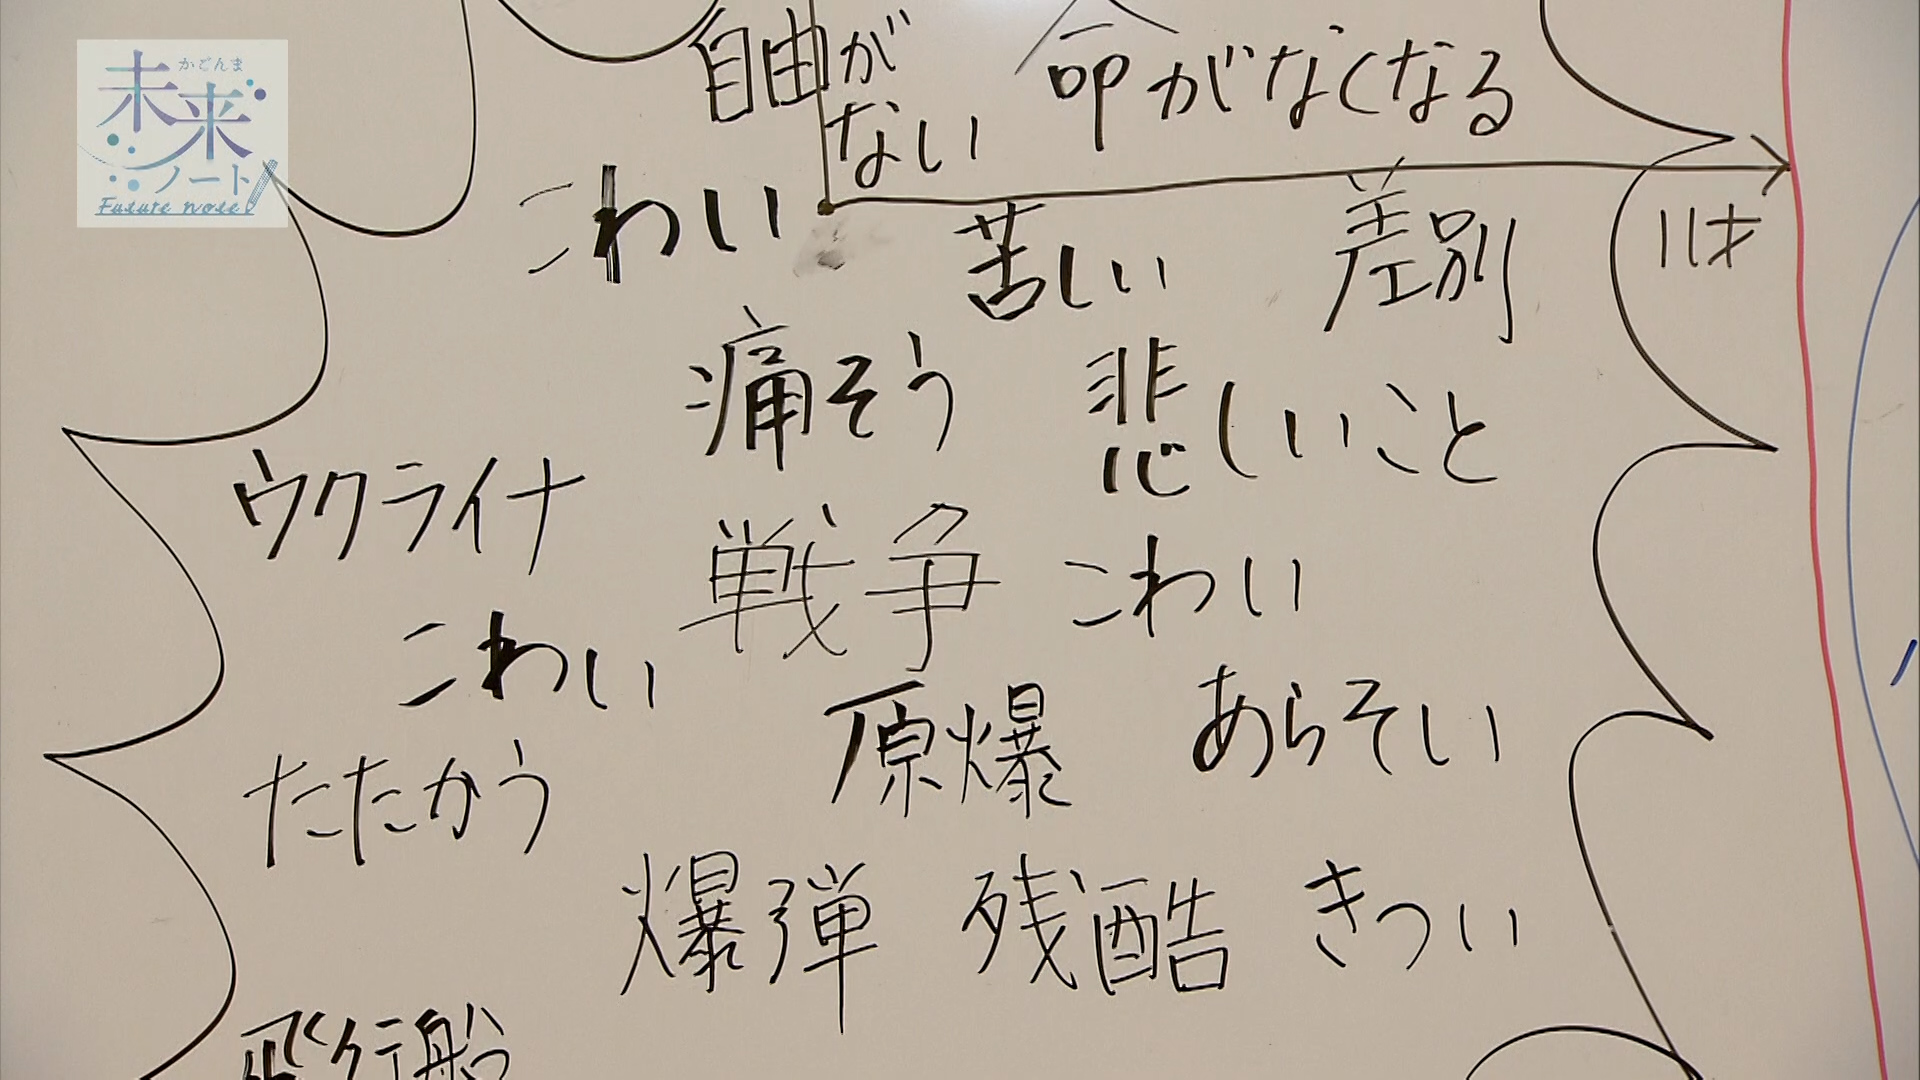 かごんま
未来
ノート
Future Note
自由が
ない
命がなくなる
こわい
苦しい
差別
11才
痛そう
悲しいこと
ウクライナ
戦争
こわい
こわい
原爆
あらそい
たたかう
爆弾
残酷
きつい
飛行船